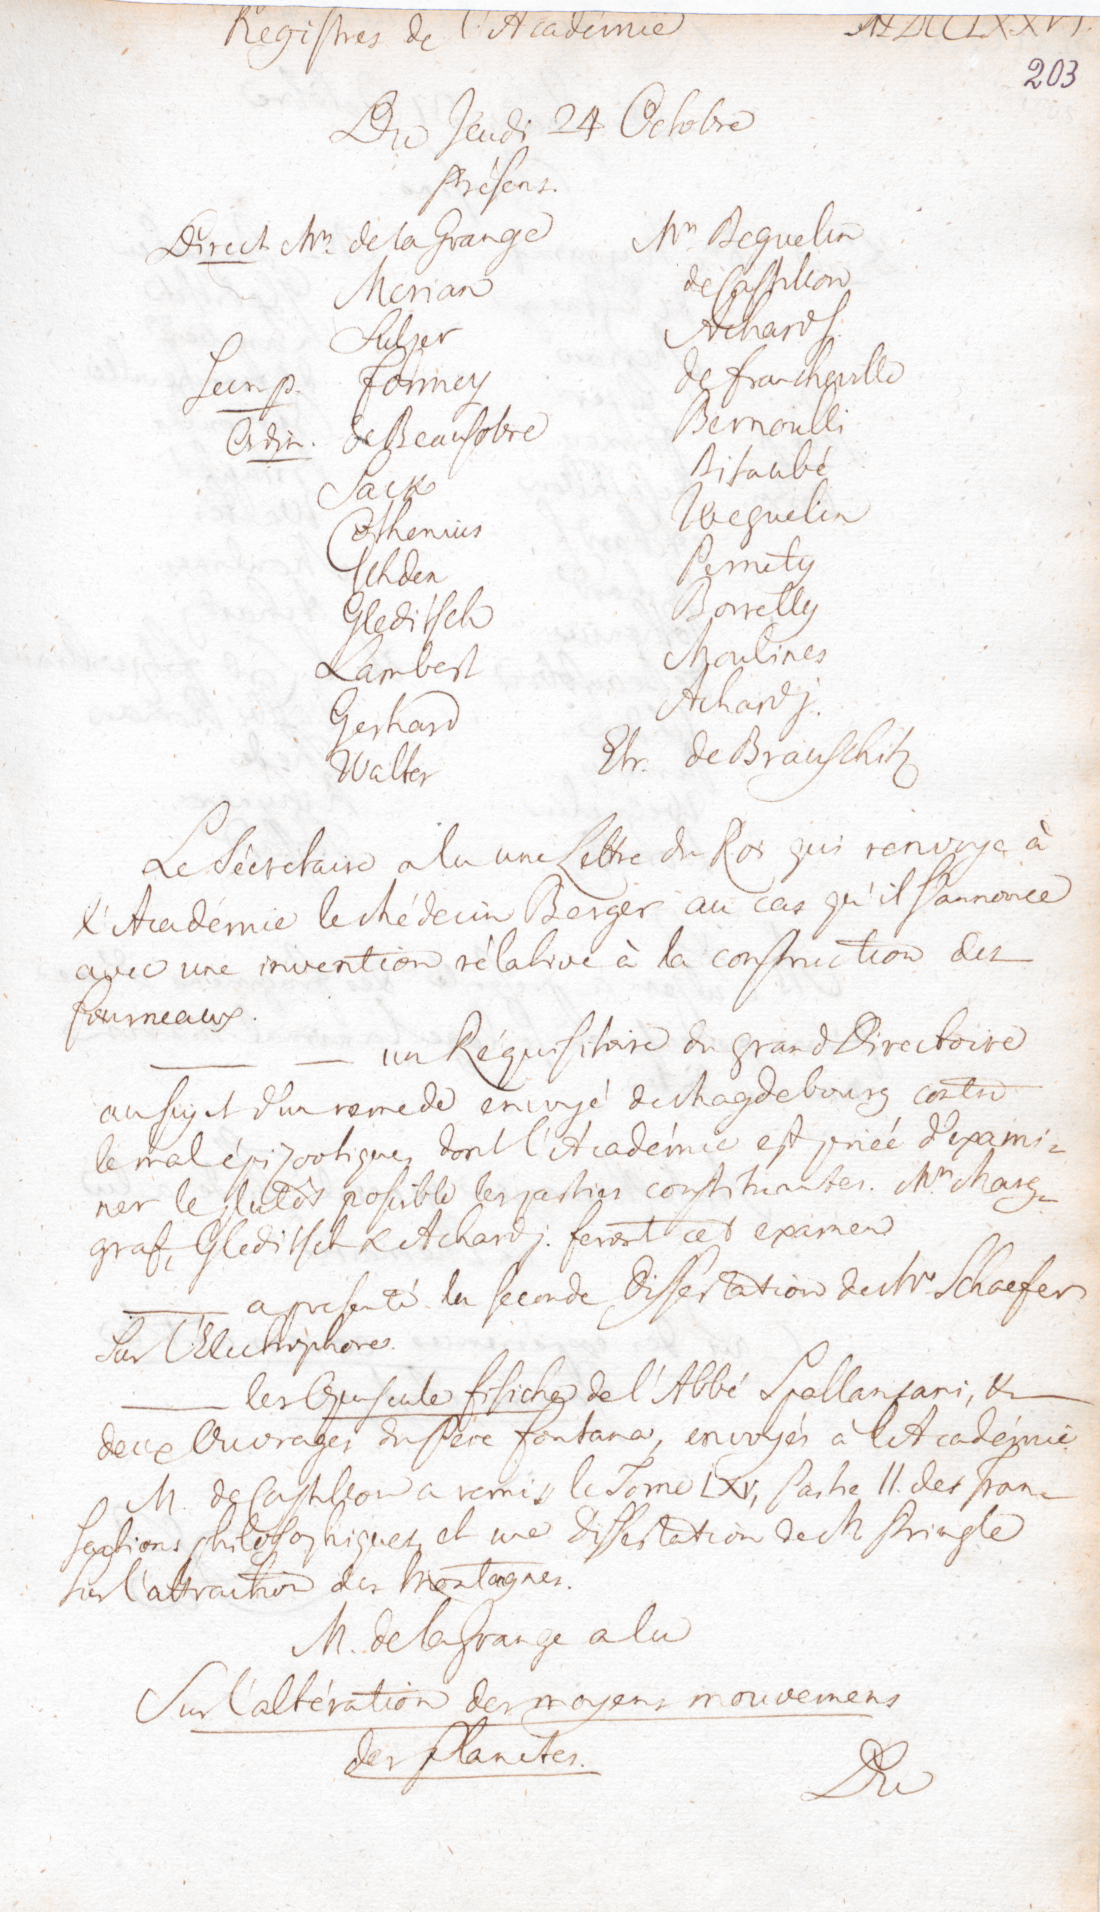 Registres de l'Académie MDCCLXXVI.
203
Du Jeudi 24 Octobre
Présens.
Direct Mrs. de la Grange
Merian
Sulzer
Secr. p. Formey
Ordin. de Beausobre
Sack
Cothenius
Gleditsch
Lambert
Gerhard
Walter
Mrs. Beguelin
de Castillon
Achard S.
de Francheville
Bernoulli
Bitaubé
Weguelin
Pernety
Borrelly
Moulines
Achard j.
Etr. de Brauschitz
Le Sécretaire a lu une Lettre du Roi qui renvoye à
l'Académie le Médecin Berger au cas qu'il s'annonce
avec une invention rélative à la construction des
fourneaux.
——— — un Réquisitoire du grand Directoire
au sujet d'un remede envoyé de Magdebourg contre
le mal épizootique, dont l'Académie est priée d'exami-
ner le plutôt possible les parties constituantes. Mrs. Marg-
graf, Gleditsch & Achard j. feront cet examen
——— a presenté la seconde Dissertation de Mr. Schaefer
sur l'Electrophore.
——— les Opuscule fisiche de l'Abbé Spallanzani, &
deux Ouvrages du Père Fontana, envoyés à l'Académie
M. de Castillon a remis le Tome LXV, Partie II. des Tran-
sactions philosophiques, et une Dissertation de M Pringle
sur l'attraction des Montagnes.
M. de la Grange a lu
Sur l'altération des moyens mouvemens
des planètes.
Du